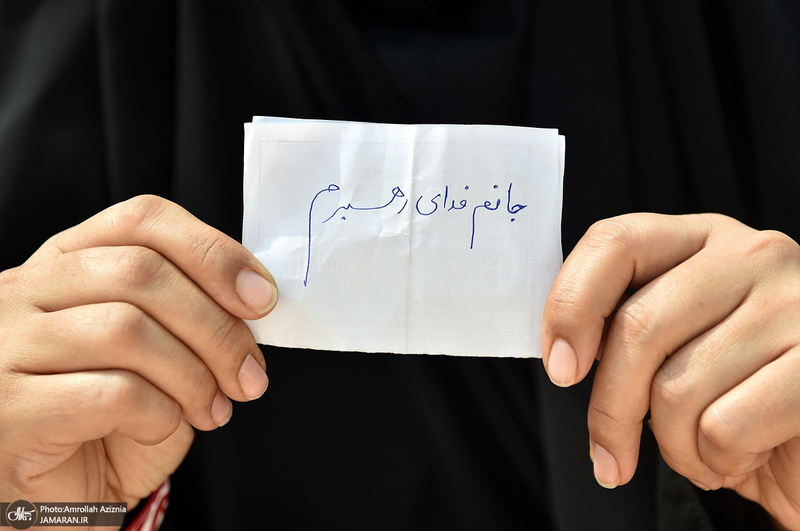 جانم فدای رهبرم
Photo:Amrollah Aziznia
JAMARAN.IR